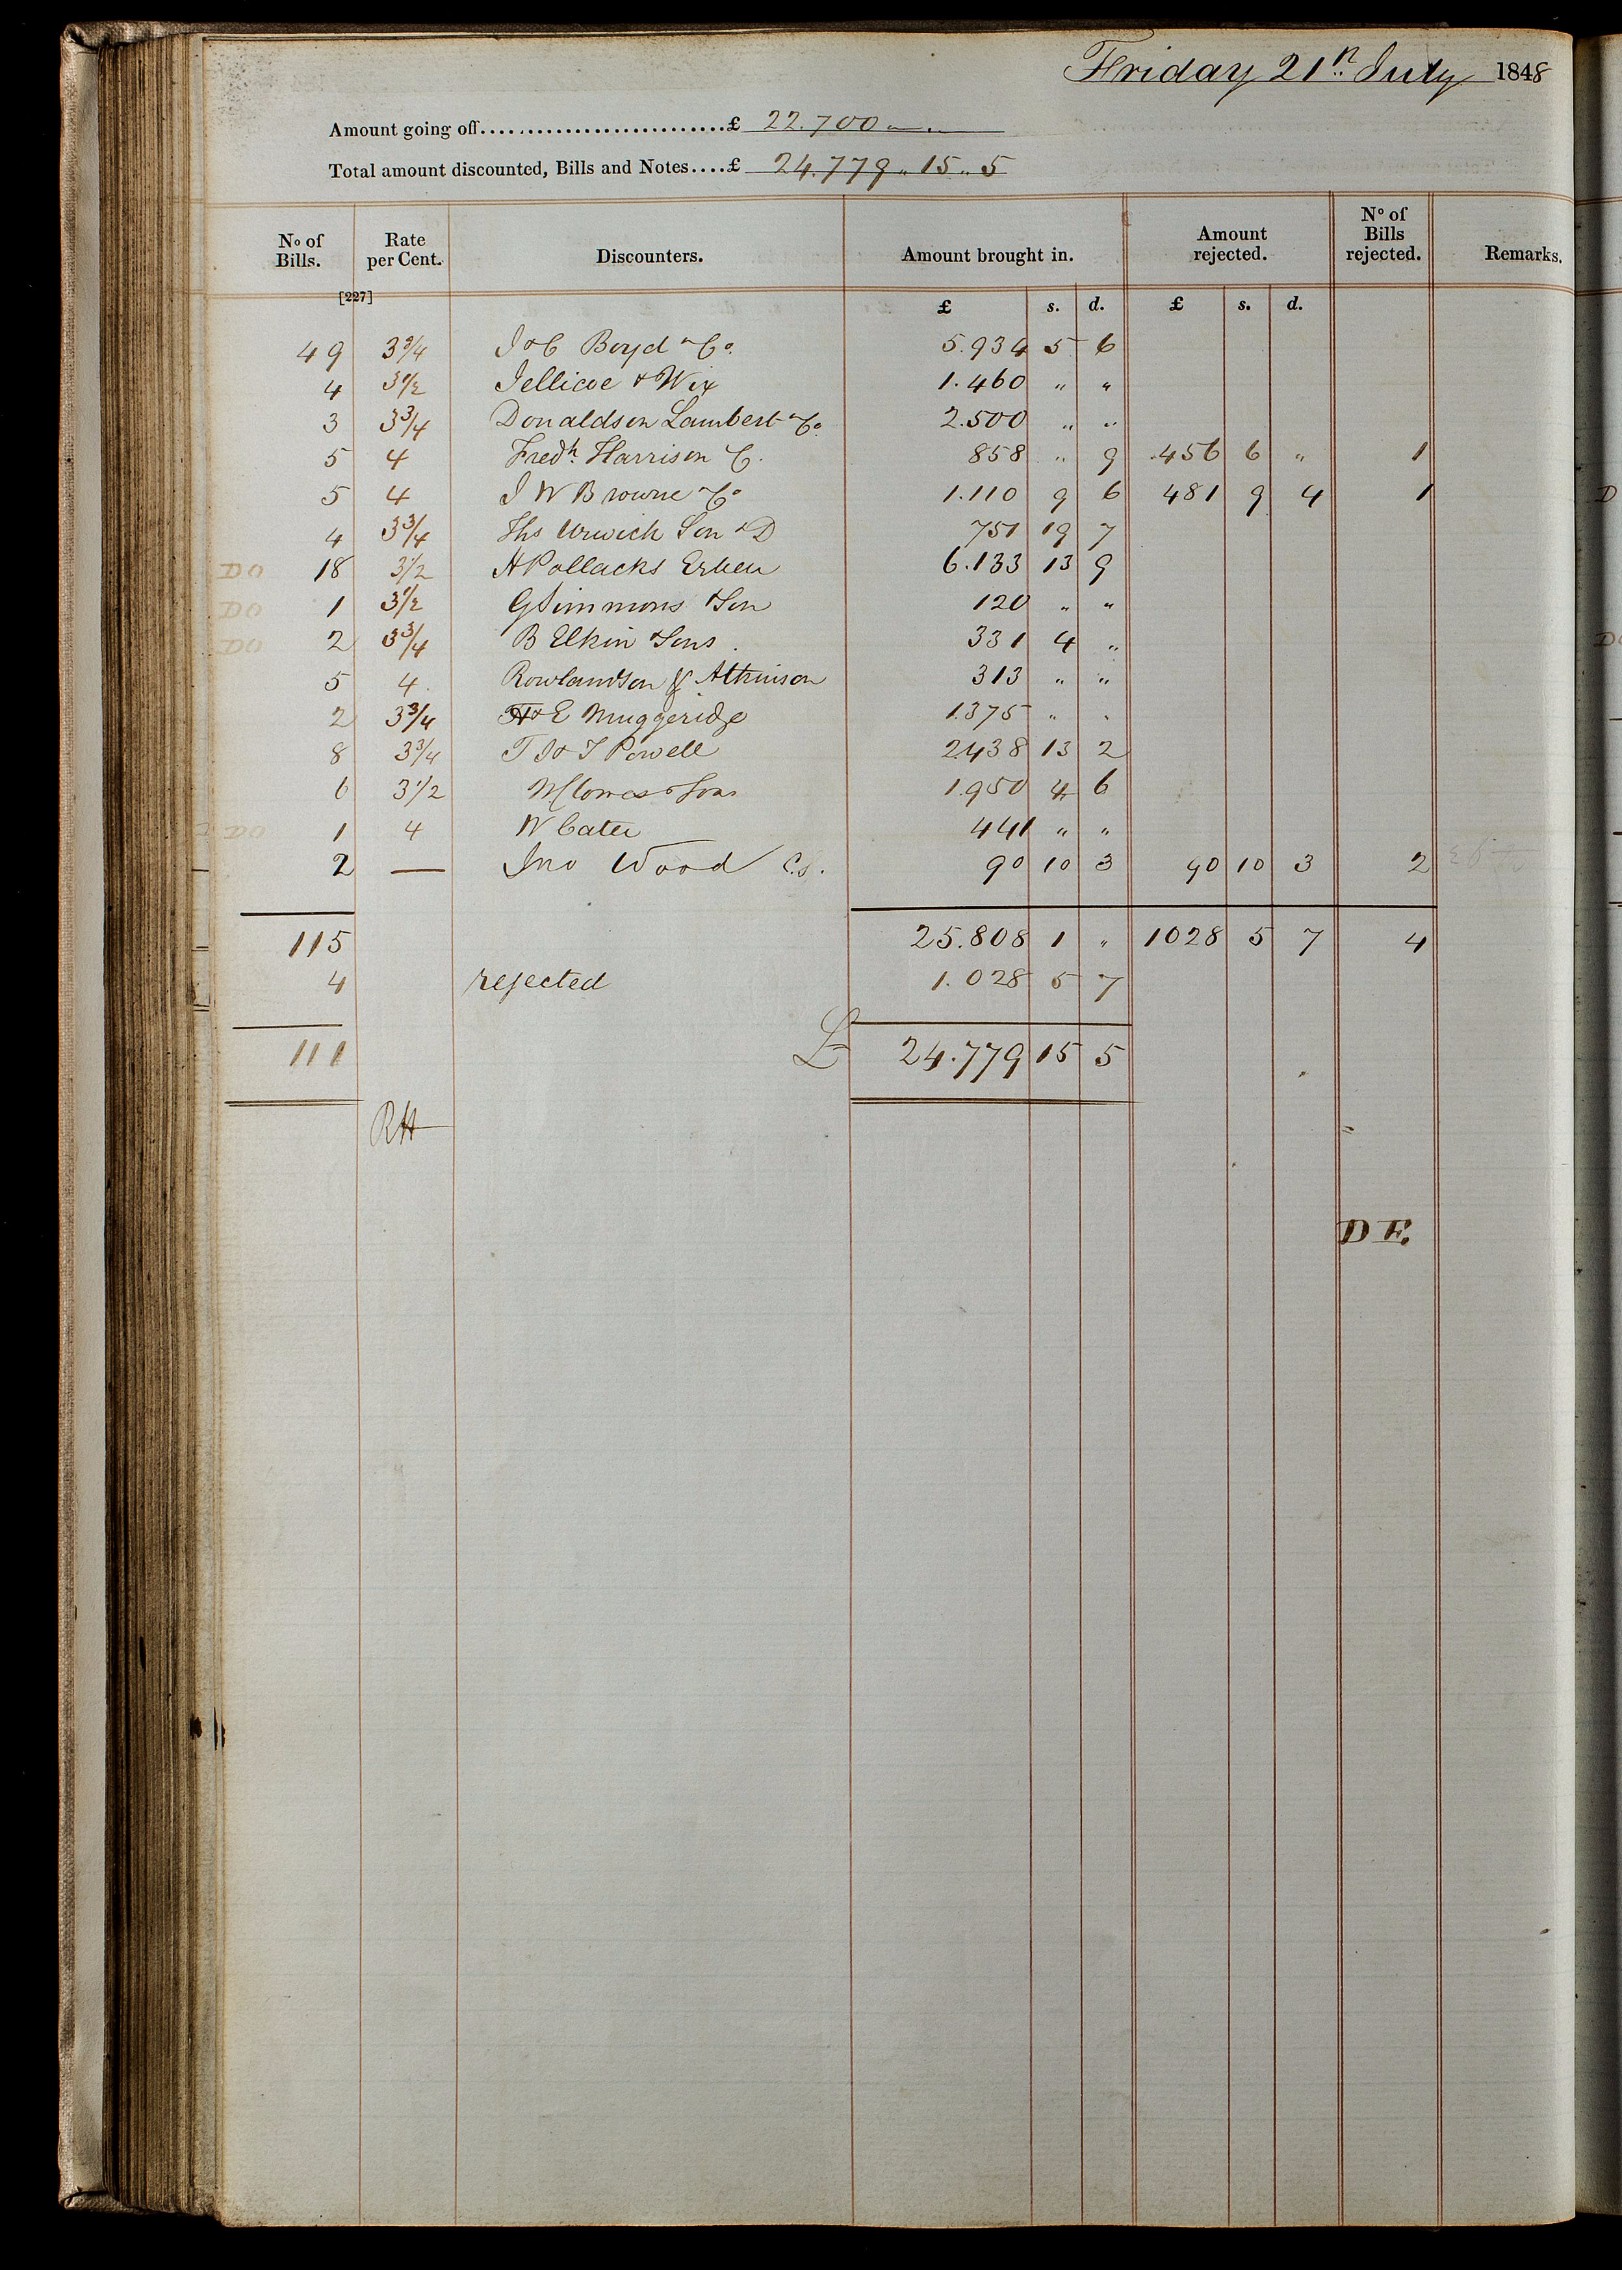 Friday 21st July 1848
Amount going off...........................£ 22.700 " "
Total amount discounted, Bills and Notes....£ 24.779 " 15 " 5
No of Bills. Rate per Cent. Discounters. Amount brought in. Amount rejected. No of Bills rejected. Remarks.
[227] £ s. d. £ s. d.
49 3 3/4 J & C Boyd & Co. 5.934 5 6
4 3 1/2 Jellicoe & Wix 1.460 " "
3 3 3/4 Donaldson Lambert & Co. 2.500 " "
5 4 Fredk. Harrison & C. 858 " 9 456 6 " 1
5 4 J W Browne & Co 1.110 9 6 481 9 4 1
4 3 3/4 Ths Urwick Son & D 751 19 7
DO 18 3 1/2 A Pollacks Erben 6.133 13 9
DO 1 3 1/2 G Simmons & Son 120 " "
DO 2 3 3/4 B Elkin & Sons 331 4 "
5 4 Rowlandson & Atkinson 313 " "
2 3 3/4 H & E Muggeridge 1.375 " "
8 3 3/4 T J & T Powell 2438 13 2
6 3 1/2 W Clowes & Sons 1.950 4 6
DO 1 4 W Cater 441 " "
2 — Jno Wood C.S. 90 10 3 90 10 3 2
115 25.808 1 " 1028 5 7 4
4 rejected 1.028 5 7
111 £ 24.779 15 5
RH
DE.